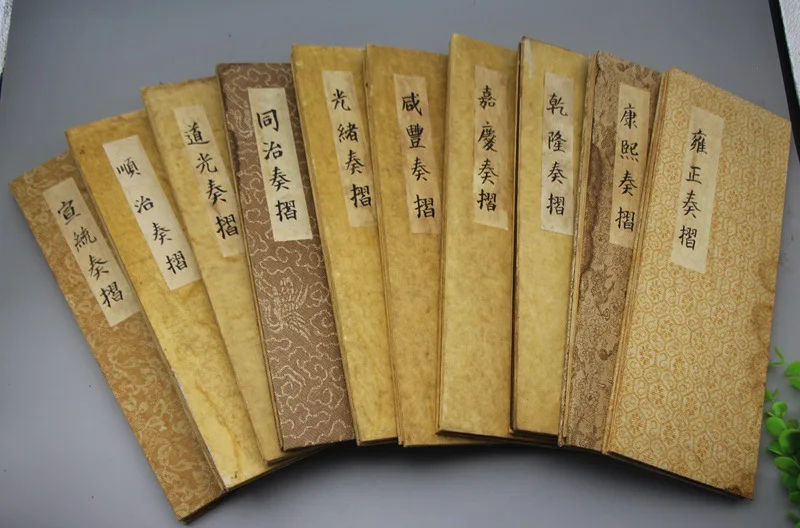 宣統奏摺
順治奏摺
道光奏摺
同治奏摺
光緒奏摺
咸豐奏摺
嘉慶奏摺
乾隆奏摺
康熙奏摺
雍正奏摺